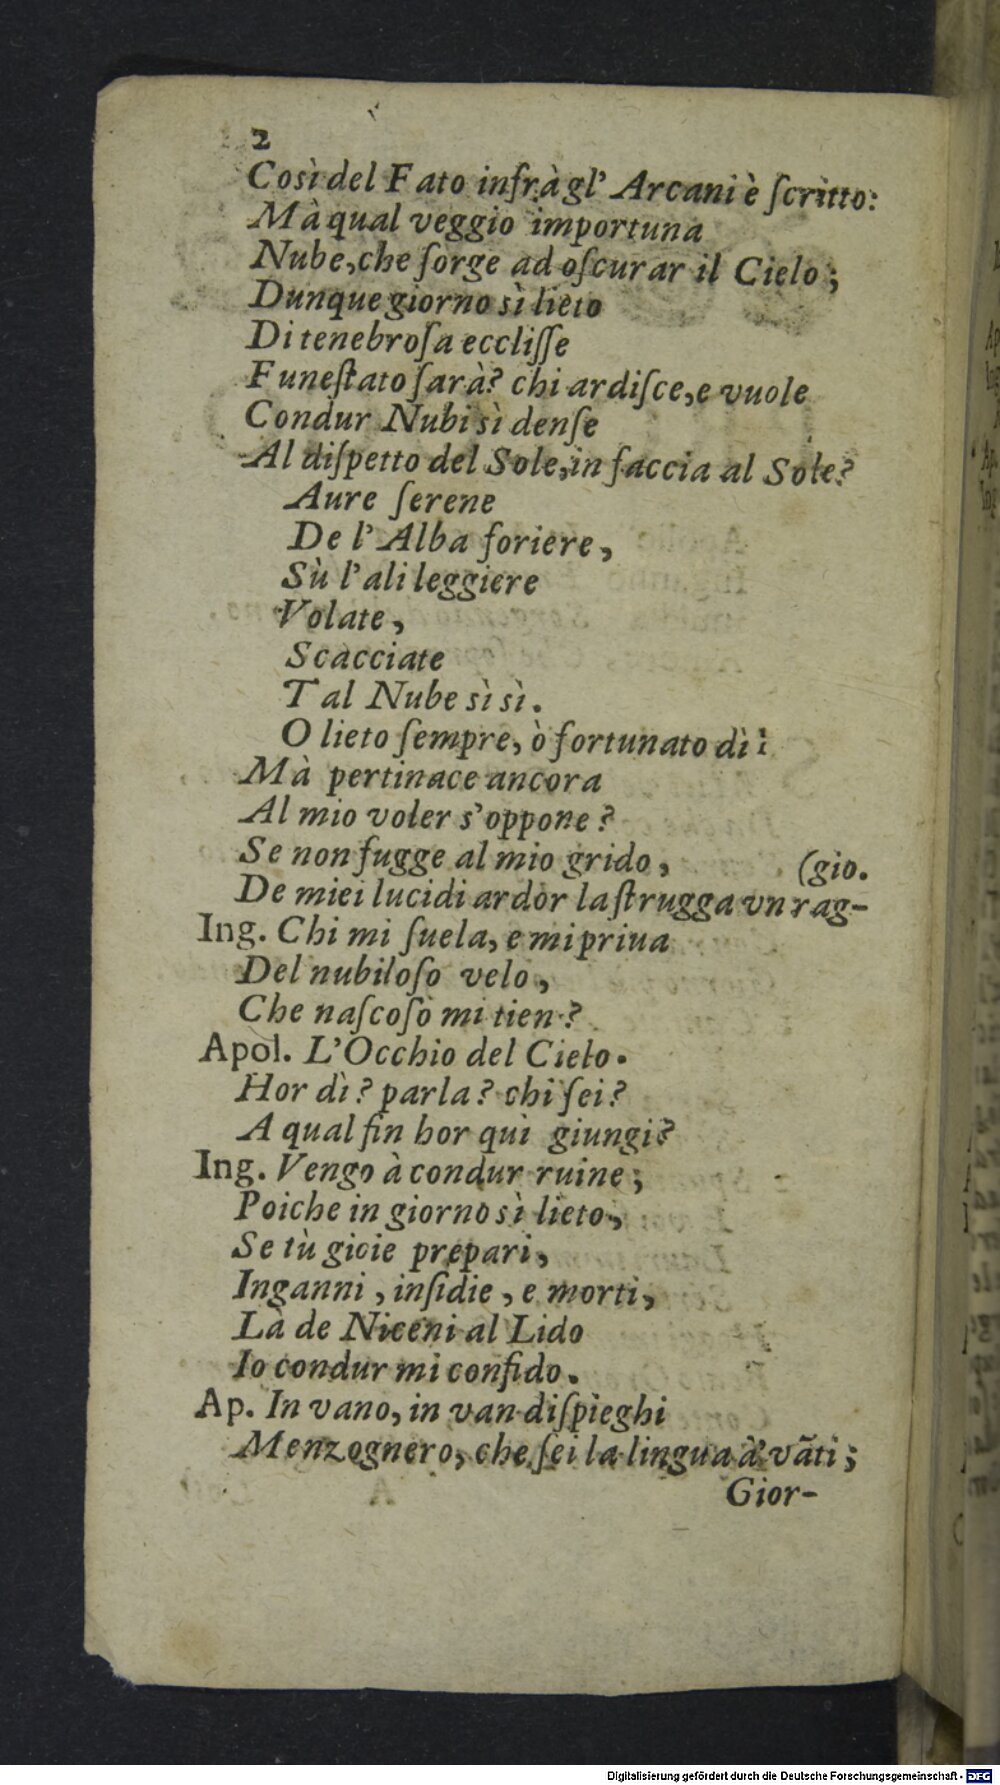 2
Così del Fato infrà gl' Arcani è ſcritto:
Mà qual veggio importuna
Nube, che ſorge ad oſcurar il Cielo;
Dunque giorno sì lieto
Di tenebroſa eccliſſe
Funeſtato ſarà? chi ardiſce, e vuole
Condur Nubi sì denſe
Al diſpetto del Sole, in faccia al Sole?
Aure ſerene
De l' Alba foriere,
Sù l' ali leggiere
Volate,
Scacciate
Tal Nube sì sì.
O lieto ſempre, ò fortunato dì!
Mà pertinace ancora
Al mio voler s'oppone?
Se non fugge al mio grido, (gio.
De miei lucidi ardor la ſtrugga vn rag-
Ing. Chi mi ſuela, e mi priua
Del nubiloſo velo,
Che naſcoſo mi tien?
Apol. L'Occhio del Cielo.
Hor dì? parla? chi ſei?
A qual fin hor quì giungi?
Ing. Vengo à condur ruine;
Poiche in giorno sì lieto,
Se tù gioie prepari,
Inganni, inſidie, e morti,
Là de Niceni al Lido
Io condur mi confido.
Ap. In vano, in van diſpieghi
Menzognero, che ſei la lingua à vãti;
Gior-
Digitalisierung gefördert durch die Deutsche Forschungsgemeinschaft - DFG